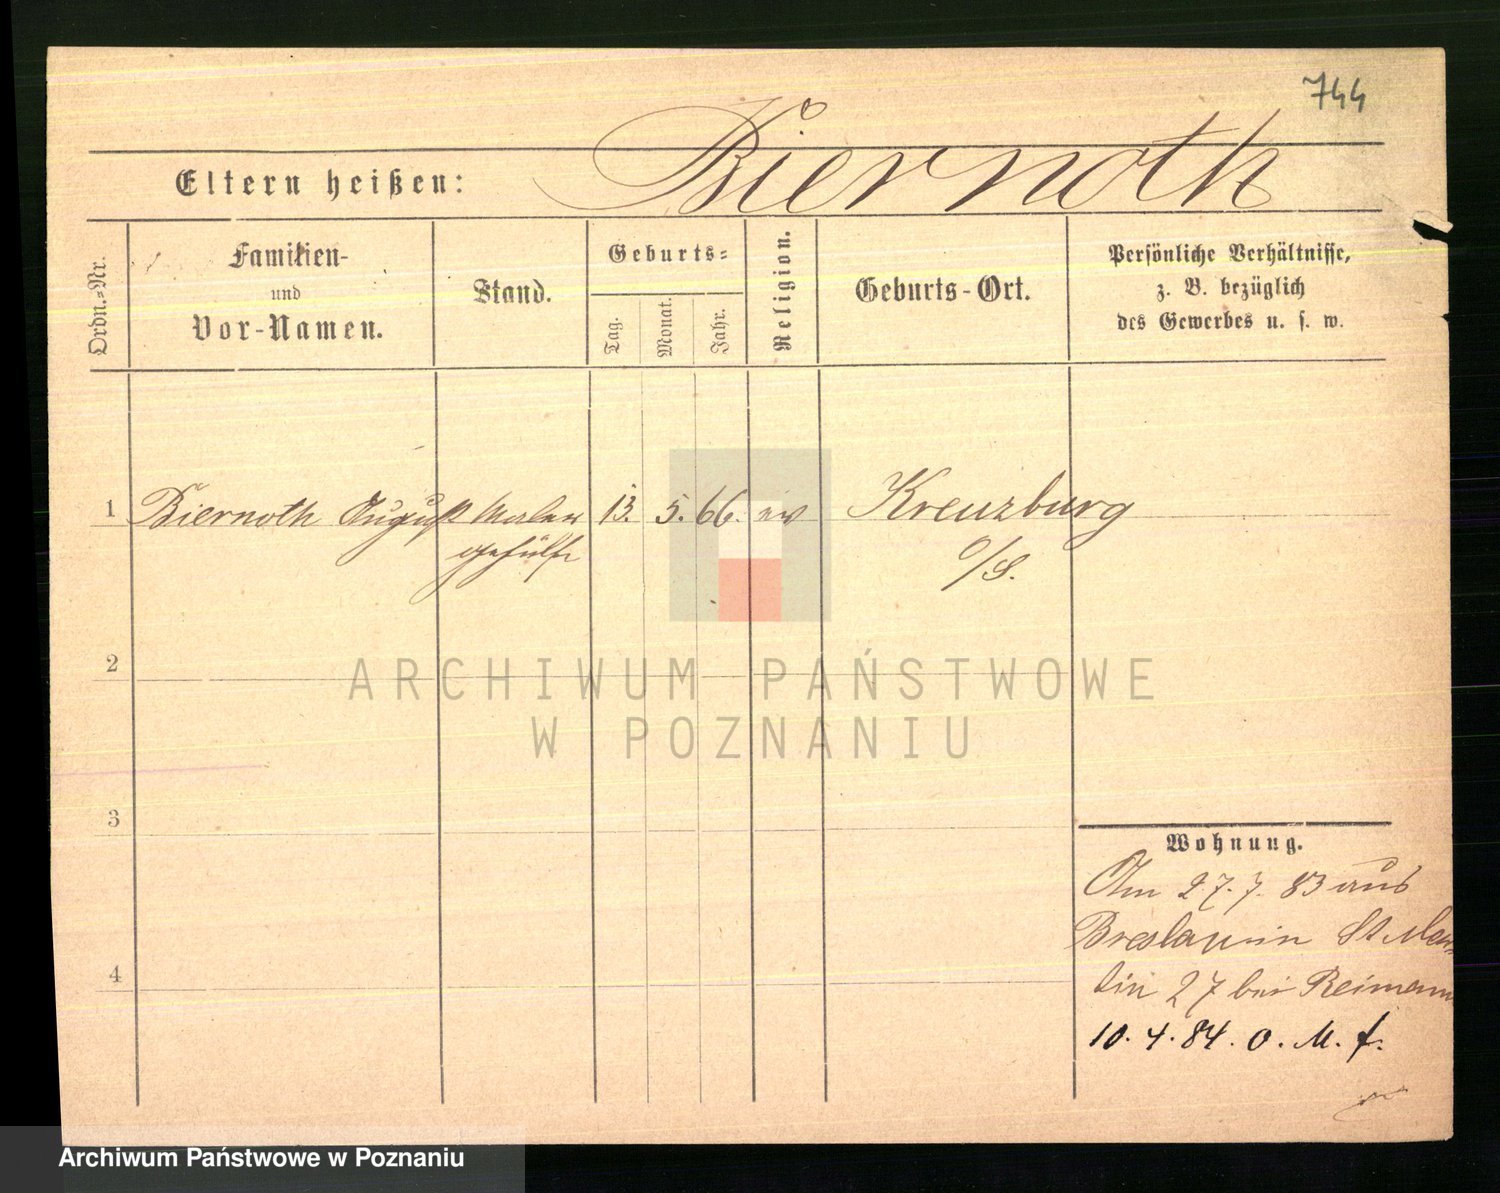 744
Eltern heißen: Biernoth
Ordn.=Nr.
Familien-
und
Vor-Namen.
Stand.
Geburts=
Tag.
Monat.
Jahr.
Religion.
Geburts-Ort.
Persönliche Verhältnisse,
z. B. bezüglich
des Gewerbes u. s. w.
1 Biernoth August Maler 13. 5. 66. ev Kreuzburg
gehülfe O/S.
ARCHIWUM PAŃSTWOWE
W POZNANIU
2
3
4
Wohnung.
Am 27.7.83 aus
Breslau in St Mar
tin 27 bei Reimann
10.4.84. O. M. f.
Archiwum Państwowe w Poznaniu